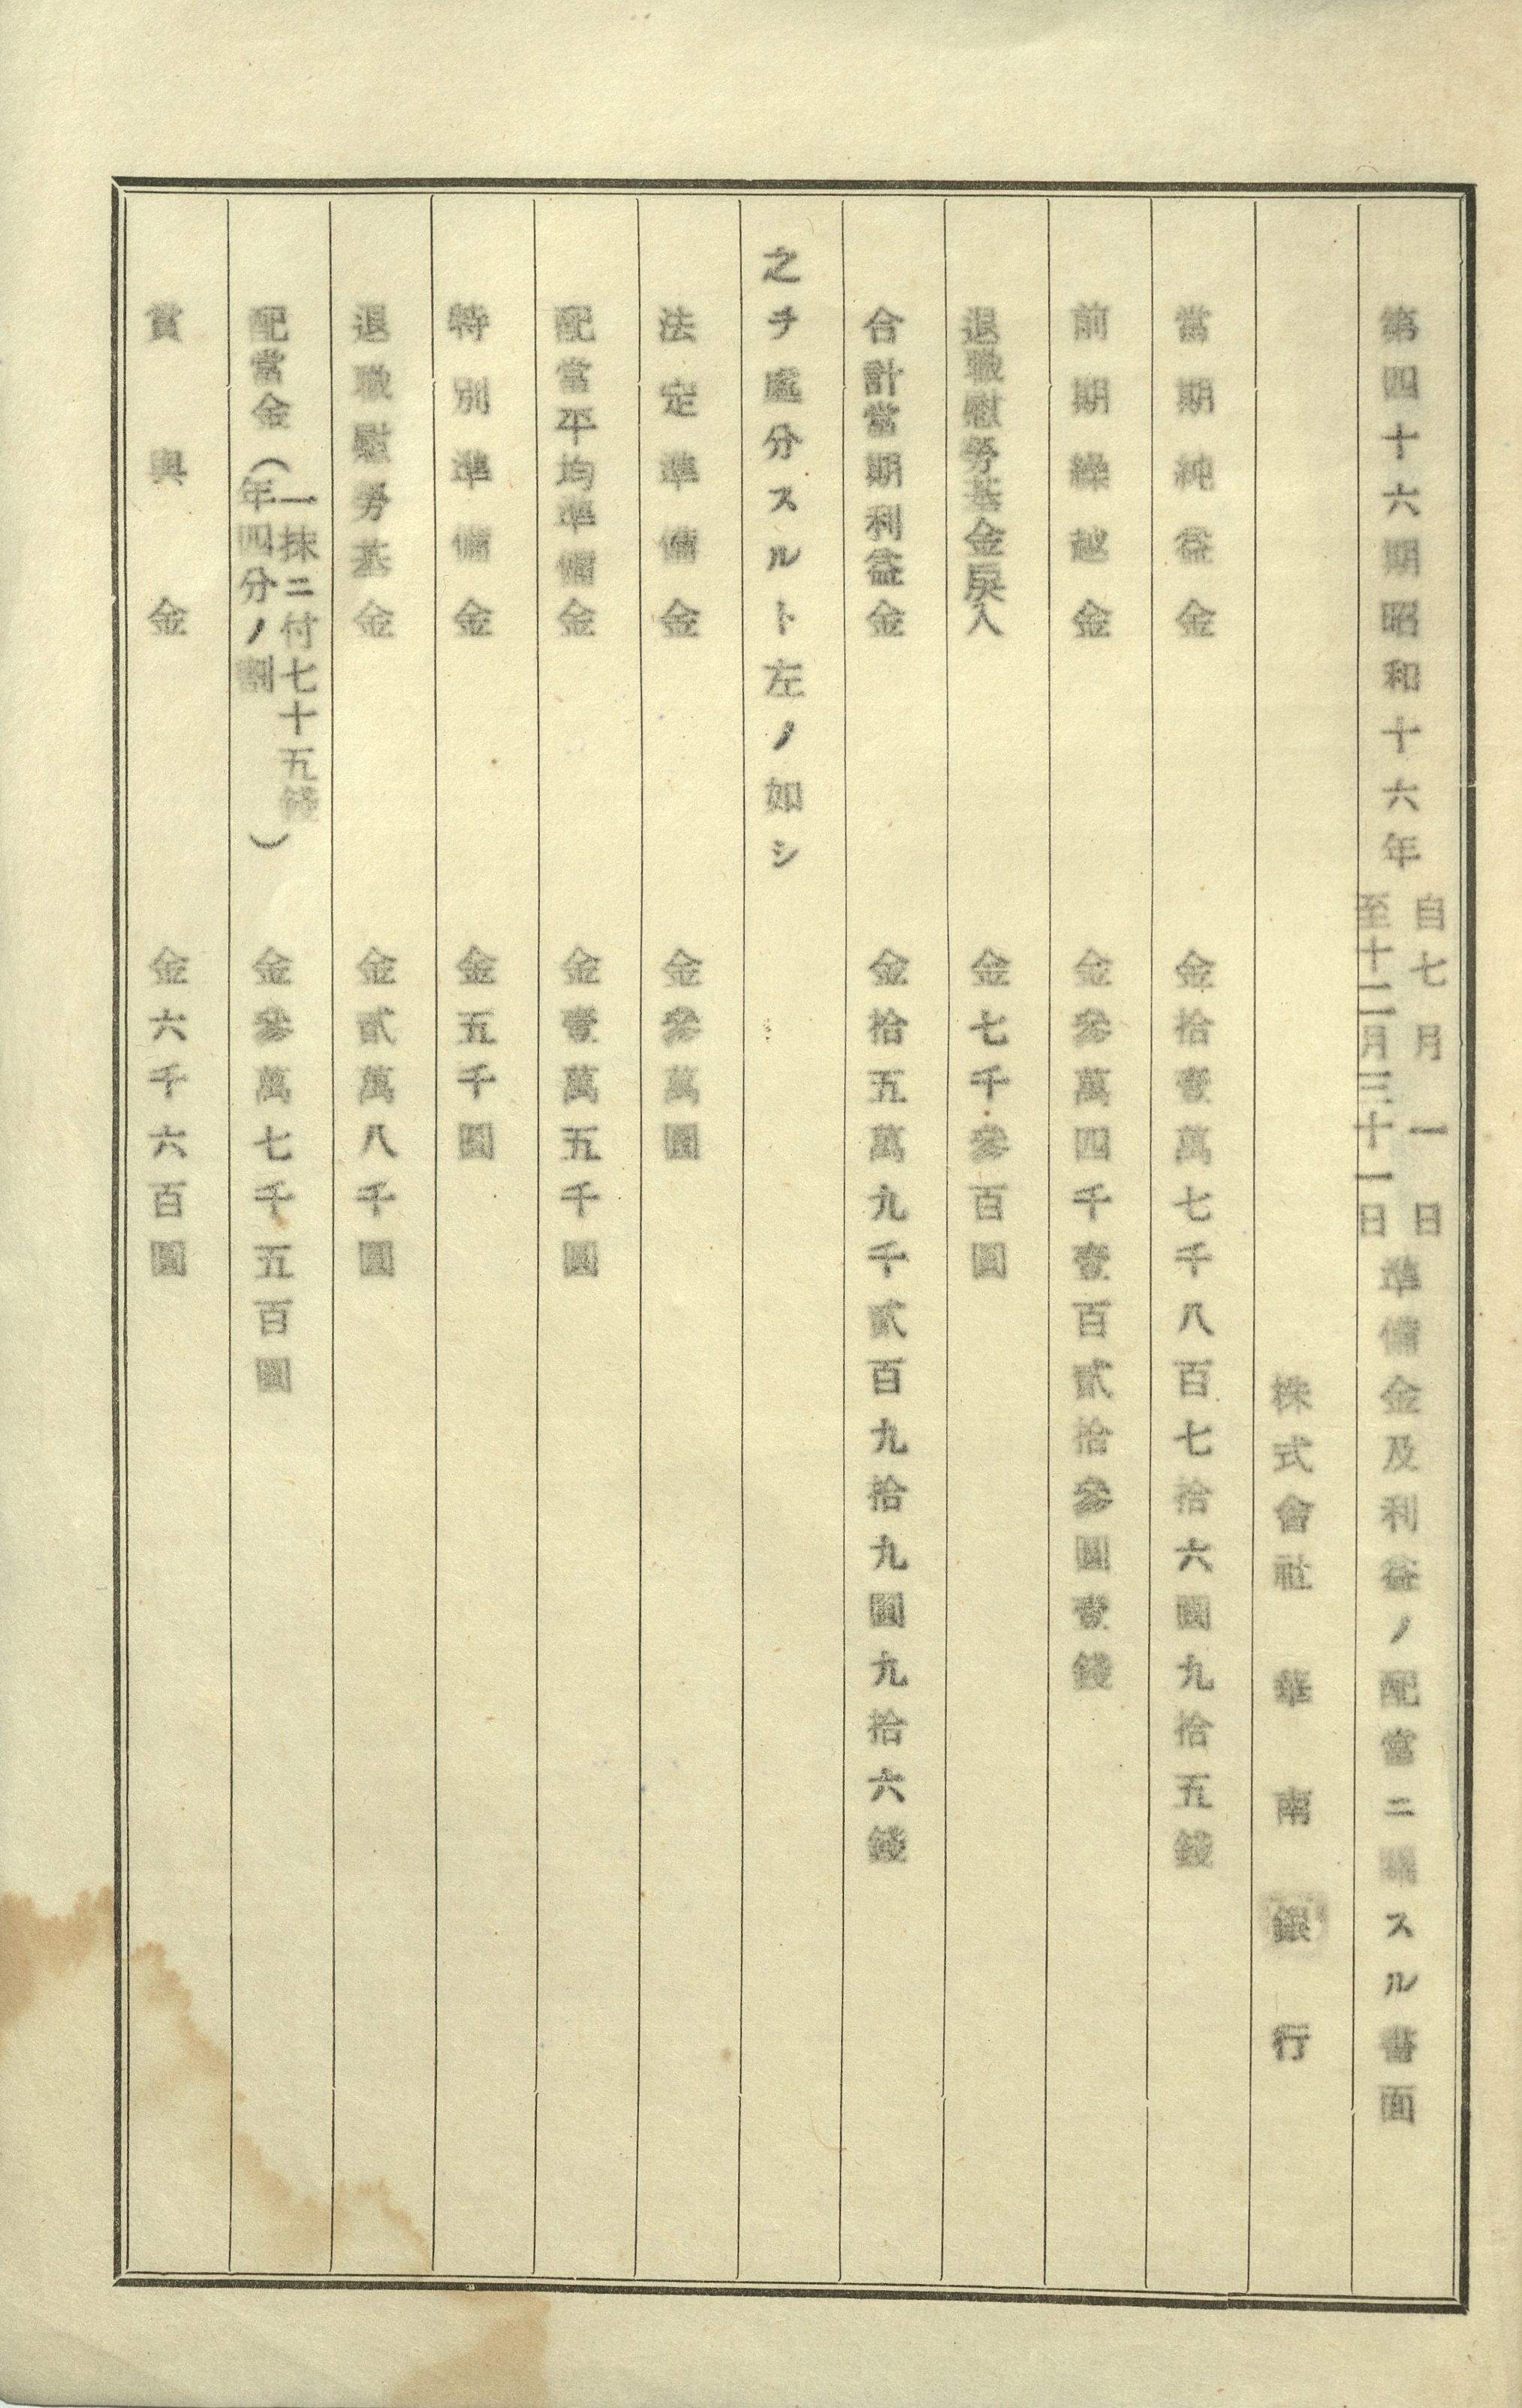 第四十六期昭和十六年自七月一日至十二月三十一日準備金及利益ノ配當ニ關スル書面
株式會社 華南銀行
當期純益金 金拾壹萬七千八百七拾六圓九拾五錢
前期繰越金 金參萬四千壹百貳拾參圓壹錢
退職慰勞基金戾入 金七千參百圓
合計當期利益金 金拾五萬九千貳百九拾九圓九拾六錢
之ヲ處分スルト左ノ如シ
法定準備金 金參萬圓
配當平均準備金 金壹萬五千圓
特別準備金 金五千圓
退職慰勞基金 金貳萬八千圓
配當金(一株ニ付七十五錢年四分ノ割) 金參萬七千五百圓
賞與金 金六千六百圓